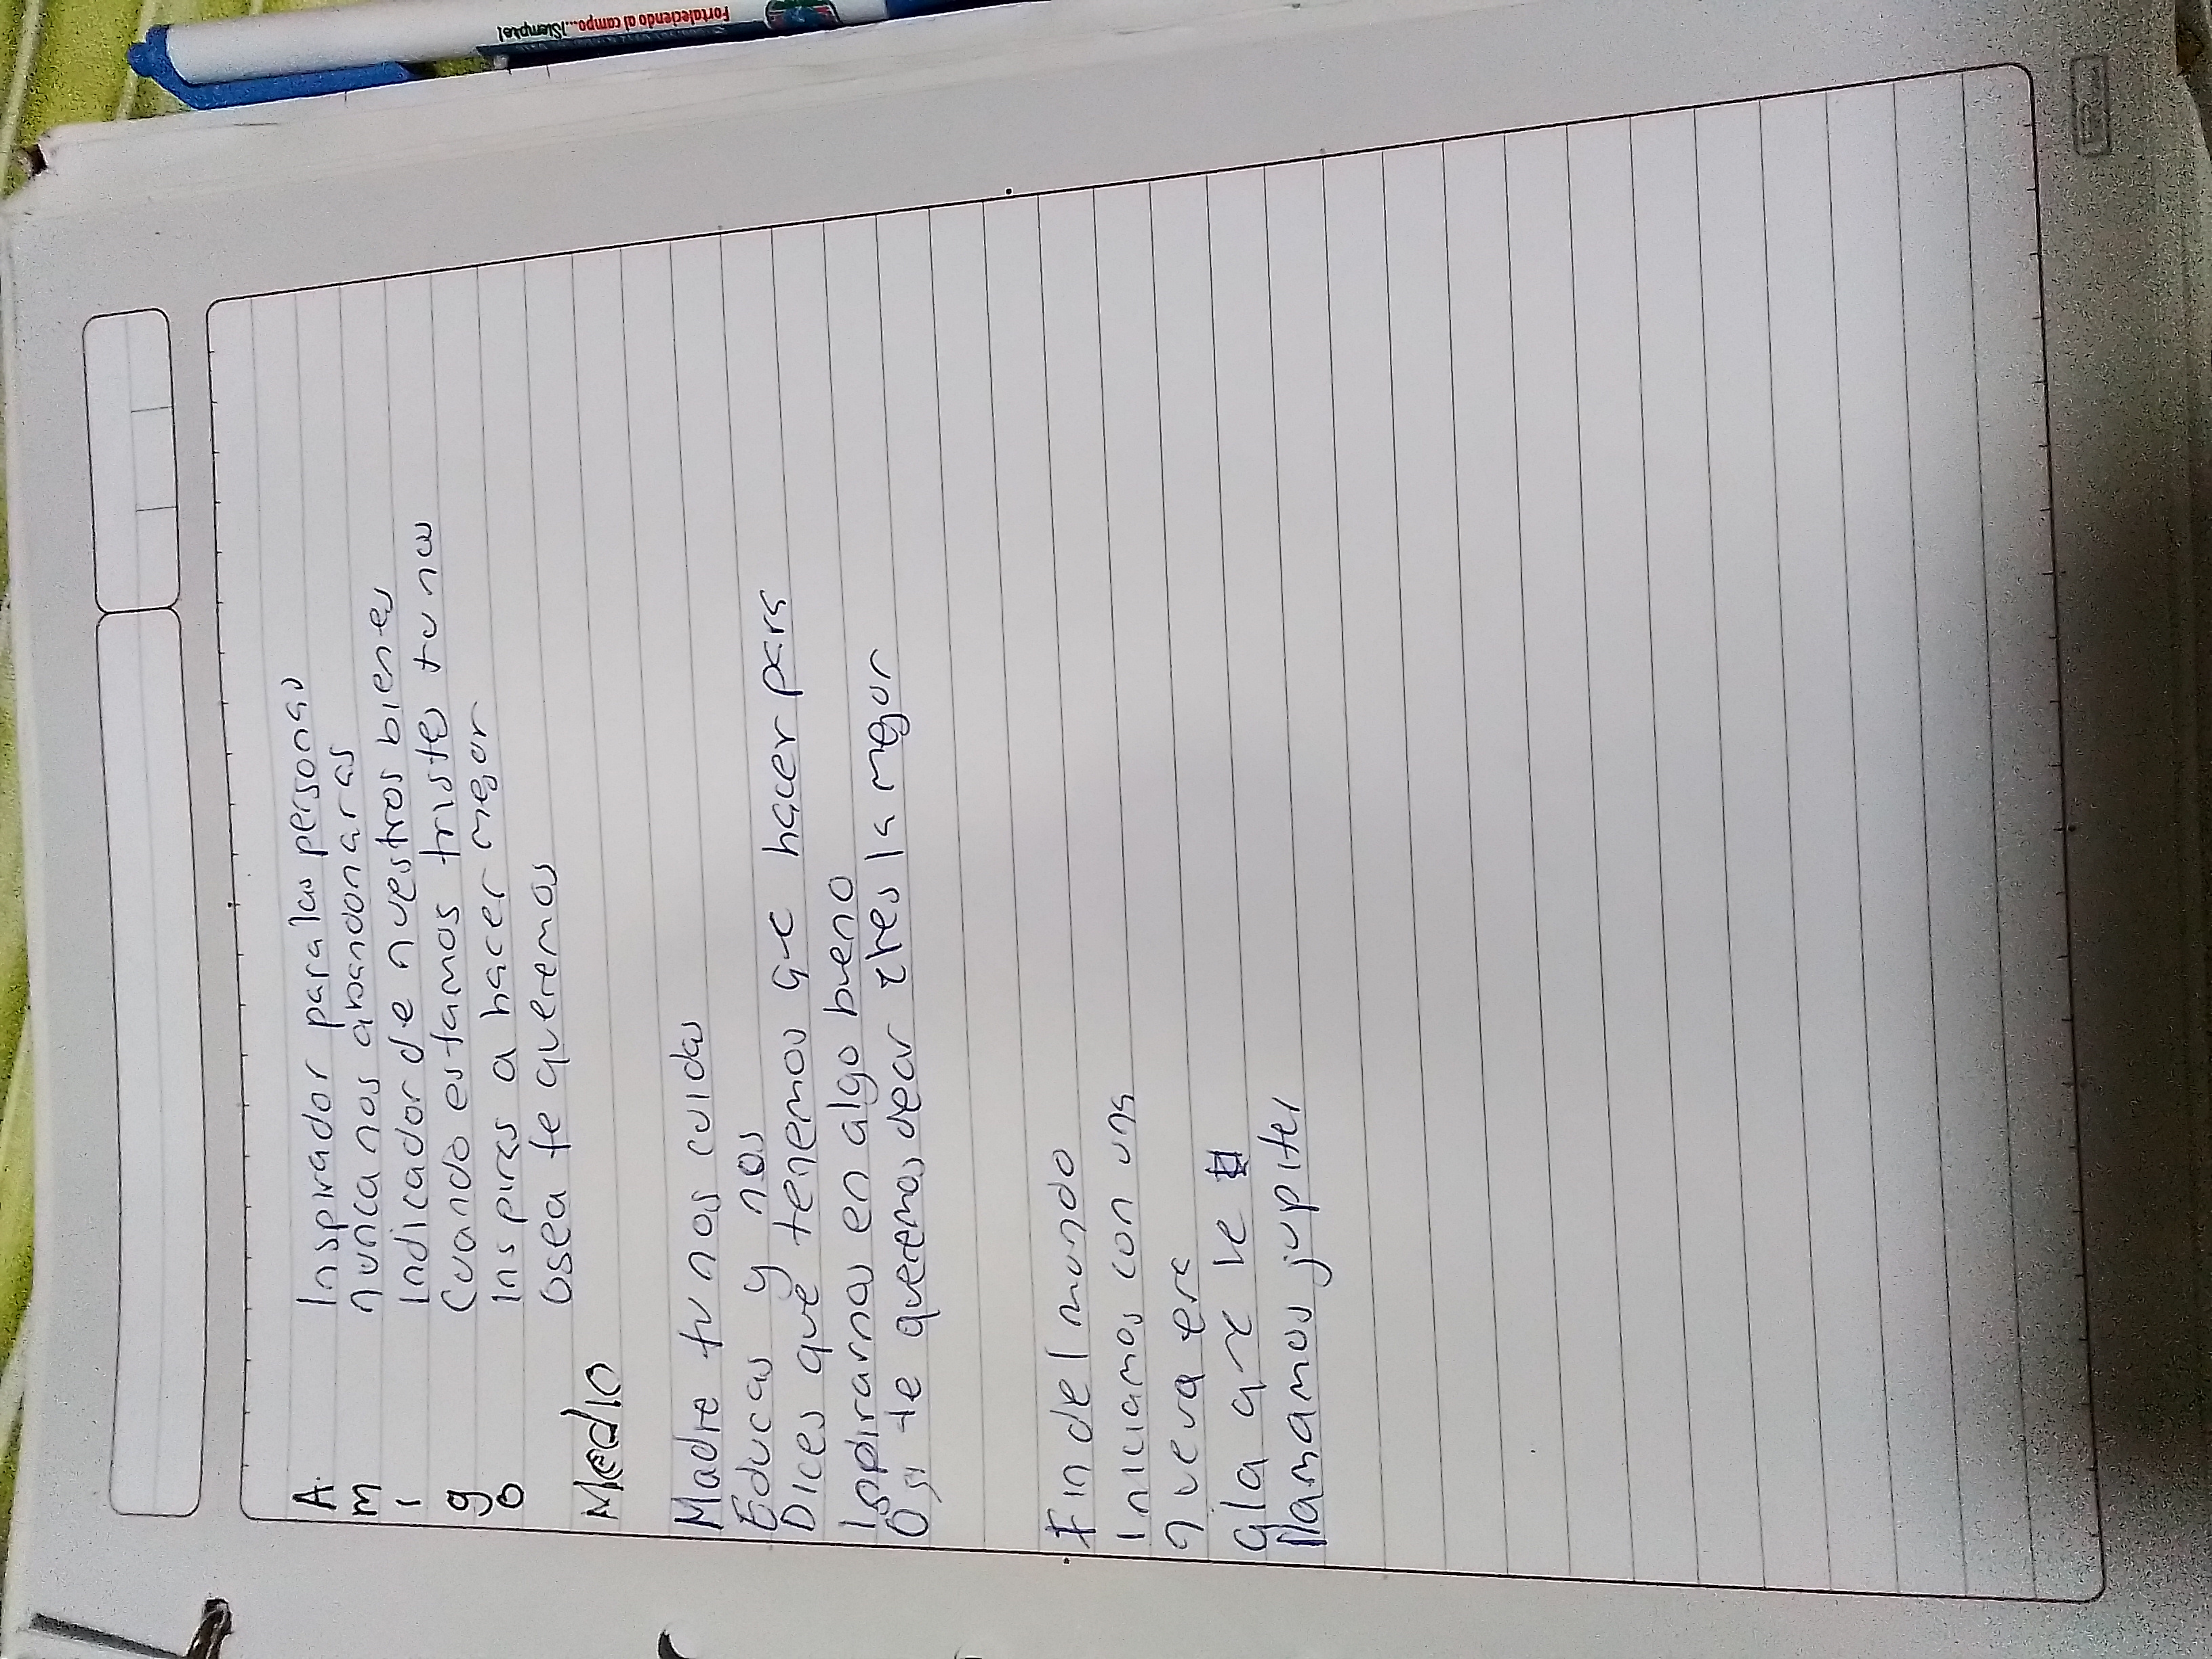 Fortaleciendo al campo...¡Siempre!
A. Inspirador para las personas
m nunca nos abandonaras
i Indicador de nuestros bienes
g Cuando estamos tristes tu nos
o Inspiras a hacer megor
osea te queremos
Medio
Madre tu nos cuidas
Educas y nos
Dices que tenemos que hacer para
Ispirarnos en algo bueno
O si te queremos decir eres la megor
Fin del mundo
Iniciamos con una
nueva era
a la que le
llamamos jupiter